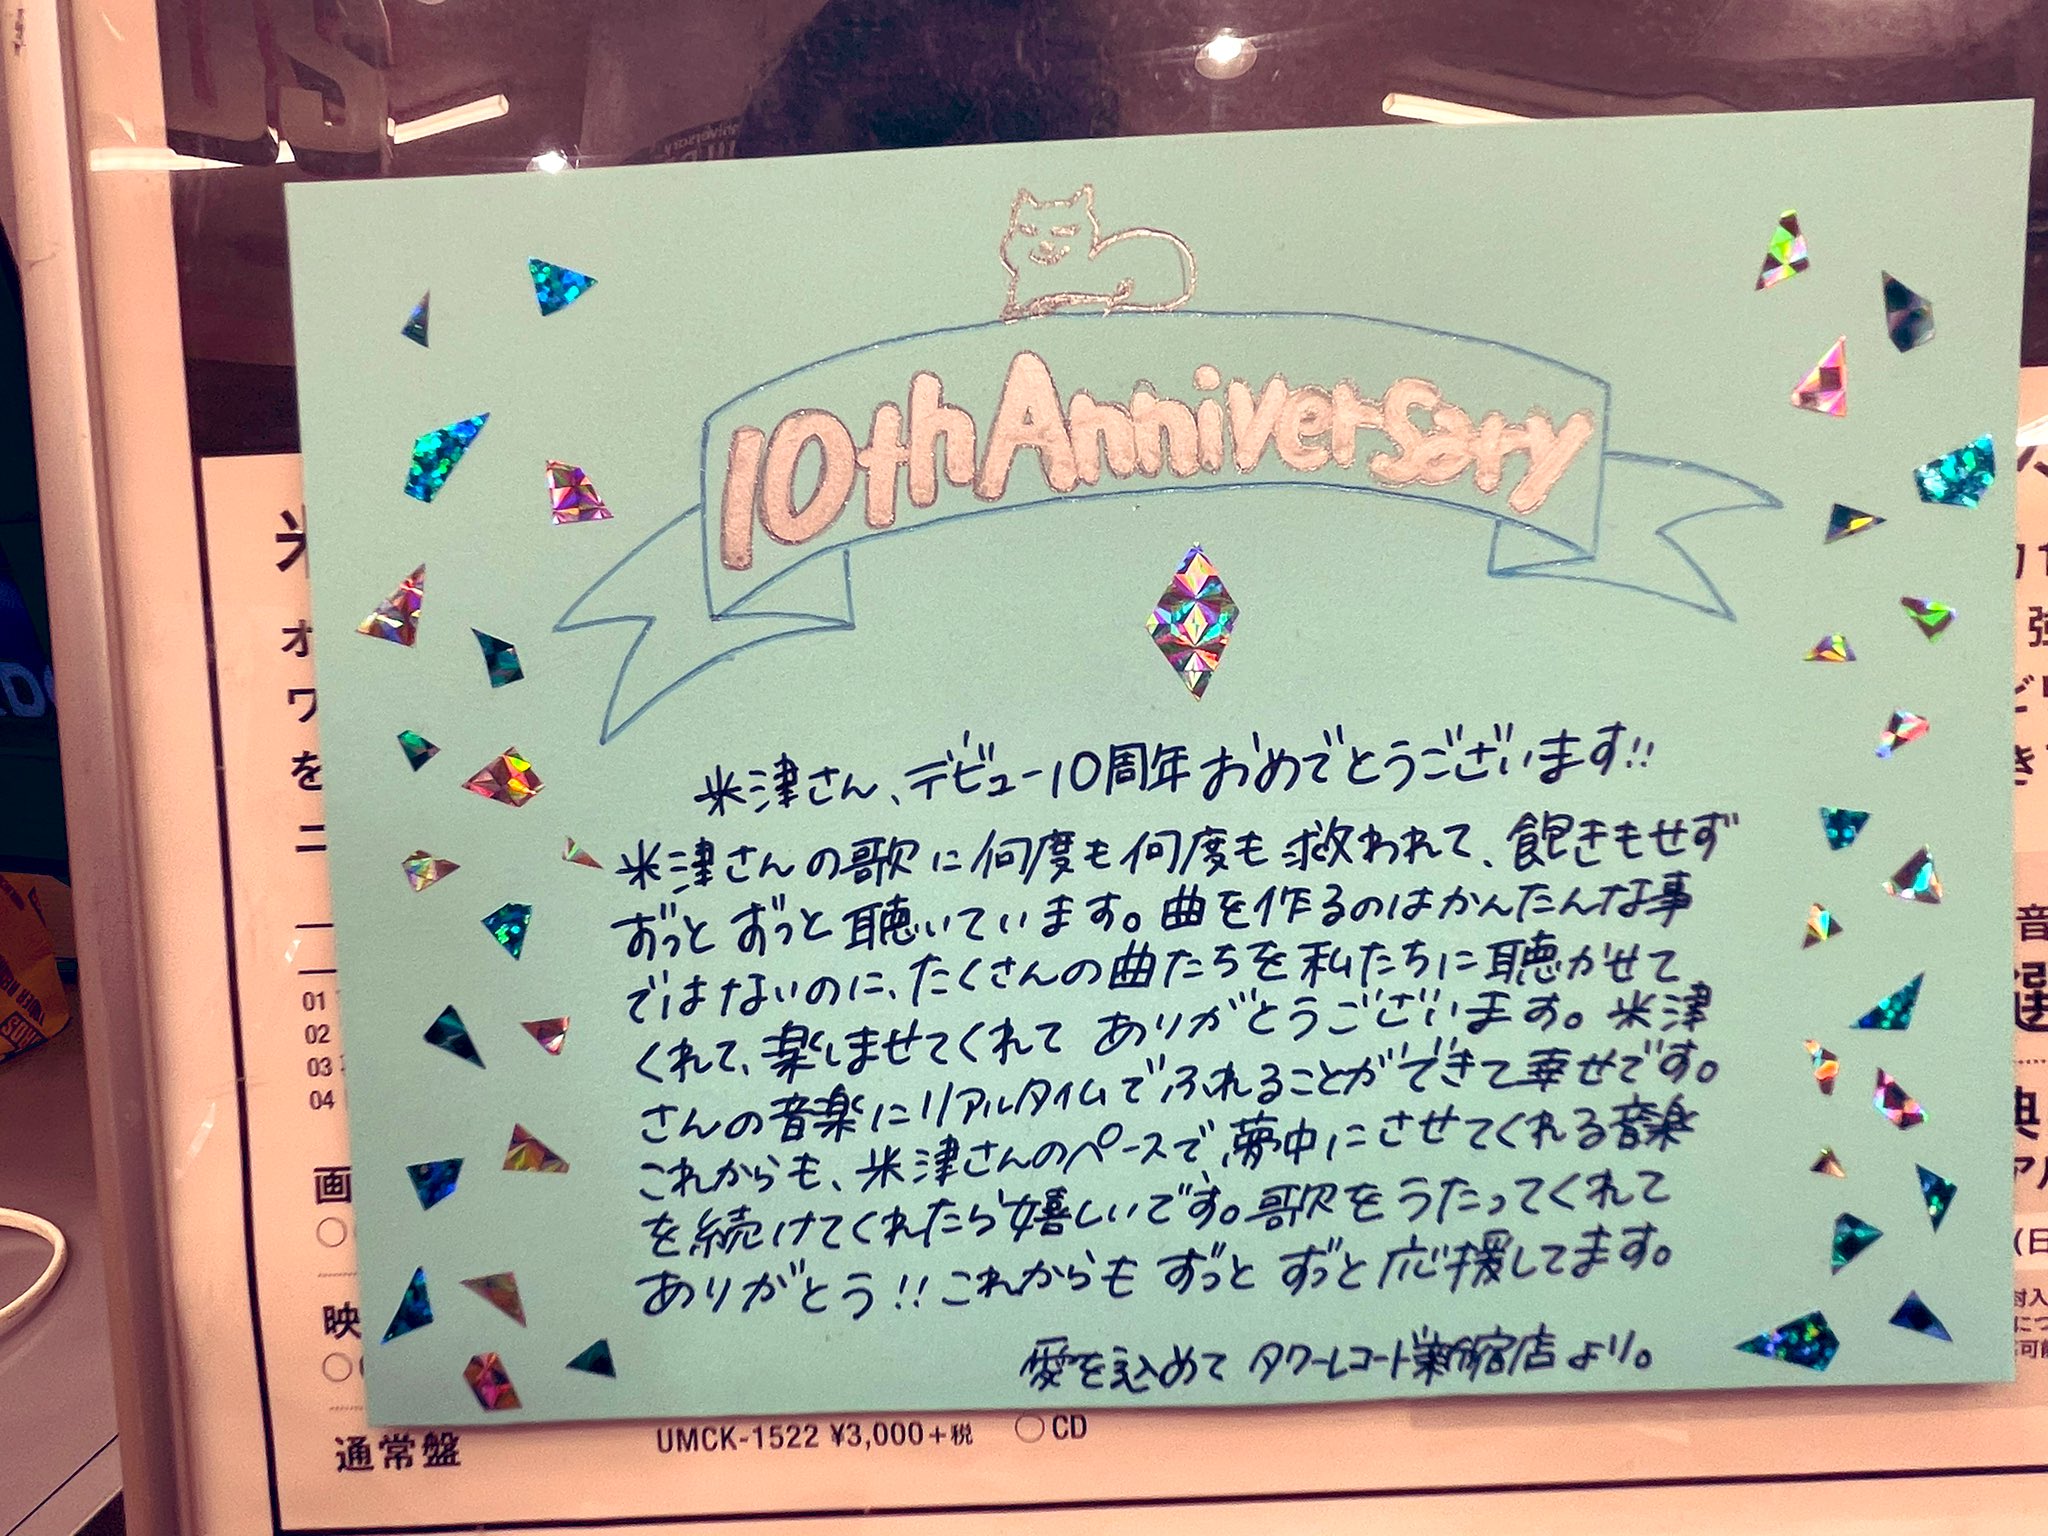 10th Anniversary
米津さん、デビュー10周年おめでとうございます!!
米津さんの歌に何度も何度も救われて、飽きもせず
ずっとずっと聴いています。曲を作るのはかんたんな事
ではないのに、たくさんの曲たちを私たちに聴かせて
くれて、楽しませてくれてありがとうございます。米津
さんの音楽にリアルタイムでふれることができて幸せです。
これからも、米津さんのペースで、夢中にさせてくれる音楽
を続けてくれたら嬉しいです。歌をうたってくれて
ありがとう!!これからもずっとずっと応援してます。
愛を込めて タワーレコード新宿店より。
01
02
03
04
画
映
通常盤 UMCK-1522 ¥3,000+税 ○CD